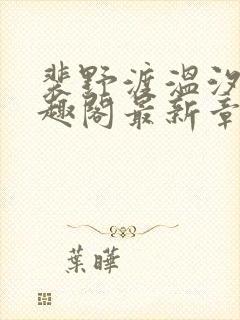 裴野渡温汐
趣阁最新章
葉曄